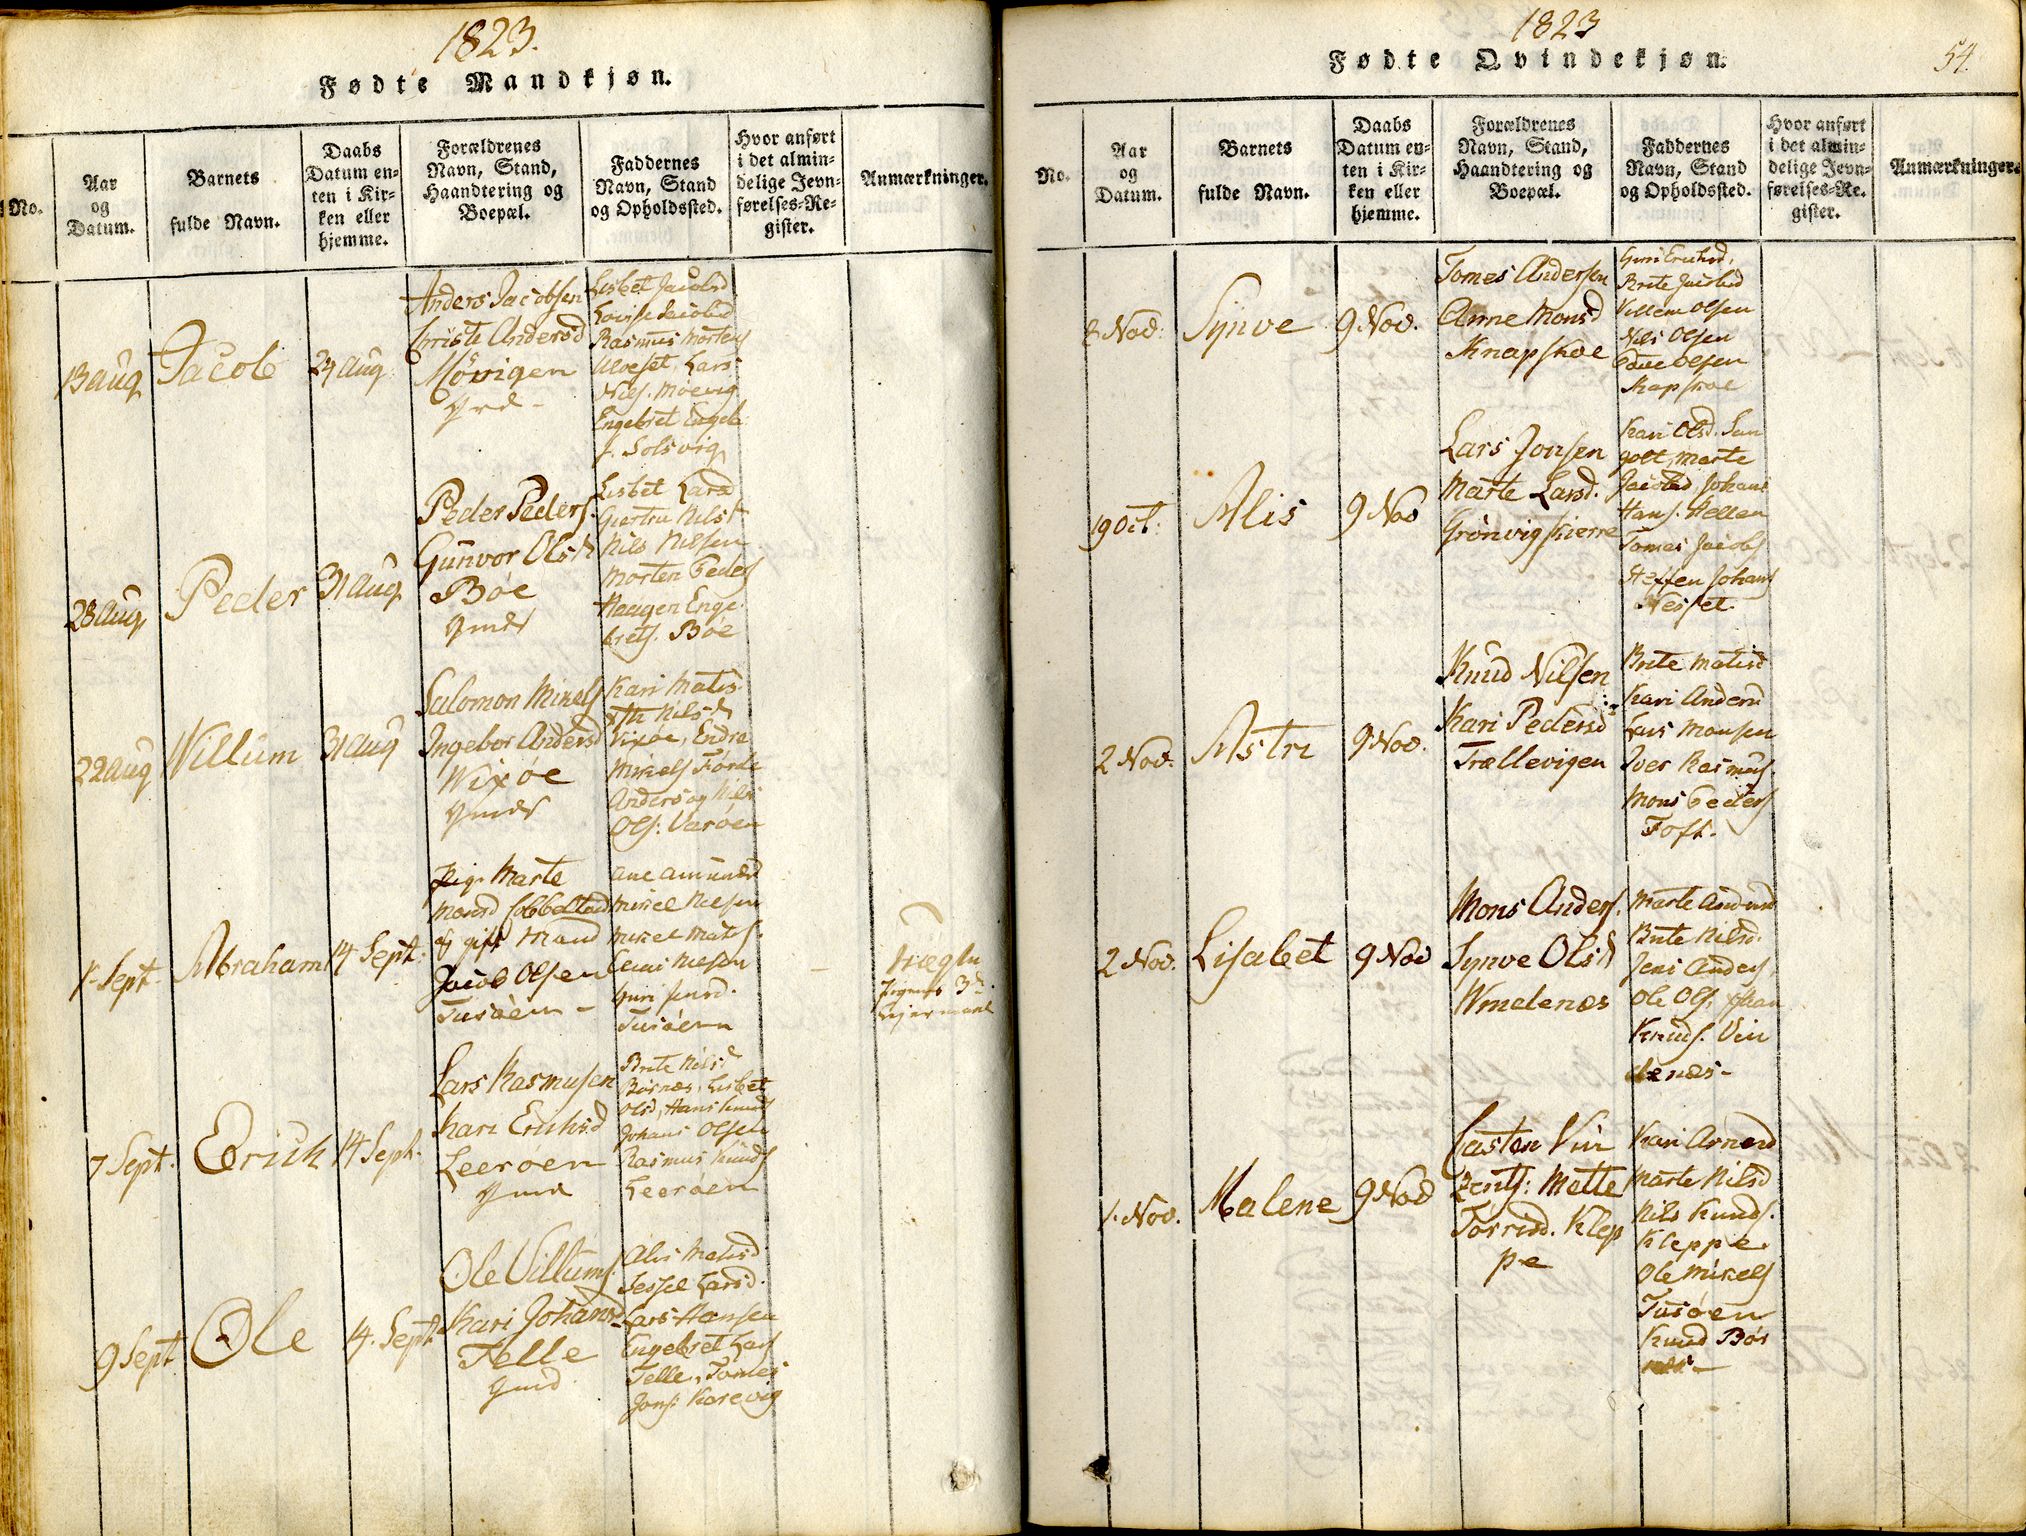 1823.
Fødte Mandkjøn.
No.
Aar
og
Datum.
Barnets
fulde Navn.
Daabs
Datum en-
ten i Kir-
ken eller
hjemme.
Forældrenes
Navn, Stand,
Haandtering og
Boepæl.
Faddernes
Navn, Stand
og Opholdssted.
Hvor anført
i det almin-
delige Jevn-
førelses-Re-
gister.
Anmærkninger.
13 Aug
Jacob
24 Aug
Anders Jacobsen
Christe Andersd
Møvigen
Lisbet Jacobsd
Rasmus Mortens
Alveset, Lars
Nils. Møevig
Engebret Engeb
s. Solsvig
28 Aug
Peder
31 Aug
Peder Peders.
Gunvor Olsd
Bøe
Gmd
Lisbet Larsd
Giertru Nilsd
Nils Nilsen
Morten Peders
Haagen Enge
brets. Bøe
22 Aug
Willum
31 Aug
Salomon Mikels
Ingebor Andersd
Wixøe
Gmd
Kari Matis
Nilsd
Vixøe, Endre
Mikels Førde
Anders og Nils
Ols: Varøen
1 Sept
Abraham
14 Sept:
Pige Marte
Monsd
og gift Mand
Jacob Olsen
Tusøen -
Ane Amundsd
Mikel Nilsen
Mikel Matis.
Nilsen
Guri
Tusøen
Pigens 3de
Leiermaal
7 Sept.
Erich
14 Sept.
Lars Rasmusen
Kari Erichsd
Leerøen
Gmd
Brite Nilsd
Børnæs, Lisbet
Olsd, Hans Knuds
Johans Olsen
Rasmus Knuds
Leerøen
9 Sept
Ole
14. Sept
Ole Villums.
Kari Johansd
Telle
Gmd
Alis Matisd
Sessel Larsd.
Lars Hansen
Engebret Lars
Telle, Tomes
Jons. Korevig
1823
Fødte Qvindekjøn.
54.
No.
Aar
og
Datum.
Barnets
fulde Navn.
Daabs
Datum en-
ten i Kir-
ken eller
hjemme.
Forældrenes
Navn, Stand,
Haandtering og
Boepæl.
Faddernes
Navn, Stand
og Opholdssted.
Hvor anført
i det almin-
delige Jevn-
førelses-Re-
gister.
Anmærkninger.
Nov:
Synve
9 Nov.
Tomes Andersen
Anne Monsd
Knapskoe
Guri Erichsd,
Brite Jacobsd
Villem Olsen
Nils Olsen
Olsen
Knapskoe
19 Oct:
Alis
9 Nov
Lars Jonsen
Marte Larsd.
Grønvigskierre
Kari Olsd. San
golt, Marte
Jacobsd, Johans
Hans. Hellen
Tomes Jacobs
Steffen Johans
Nesset.
2 Nov:
Astri
9 Nov.
Knud Nilsen
Kari Pedersd
Trællevigen
Brite Matisd
Kari Andersd
Lars Monsen
Iver Rasmus.
Mons Peders
Toft.
2 Nov.
Lisabet
9 Nov
Mons Anders.
Synve Olsd
Windenæs
Marte
Brite Nilsd.
Jens Anders
Ole Ols,
Knuds. Vin
denæs -
1. Nov.
Malene
9 Nov
Casten Vin
Mette
Torrisd. Klep
pe
Kari
Marte Nilsd
Nils Knuds.
Kleppe.
Ole Mikels
Tusøen
Knud Bør
næs -